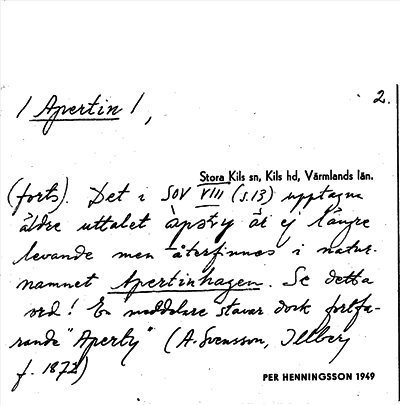 / Apertin /,
2.
Stora Kils sn, Kils hd, Värmlands län.
(forts). Det i SOV VIII (s.13) upptagna
äldre uttalet àpsty är ej längre
levande men återfinnes i natur-
namnet Apertinhagen. Se detta
ord! En meddelare stavar dock fortfa-
rande "Aperty" (A. Svensson, Illberg
f. 1872)
PER HENNINGSSON 1949